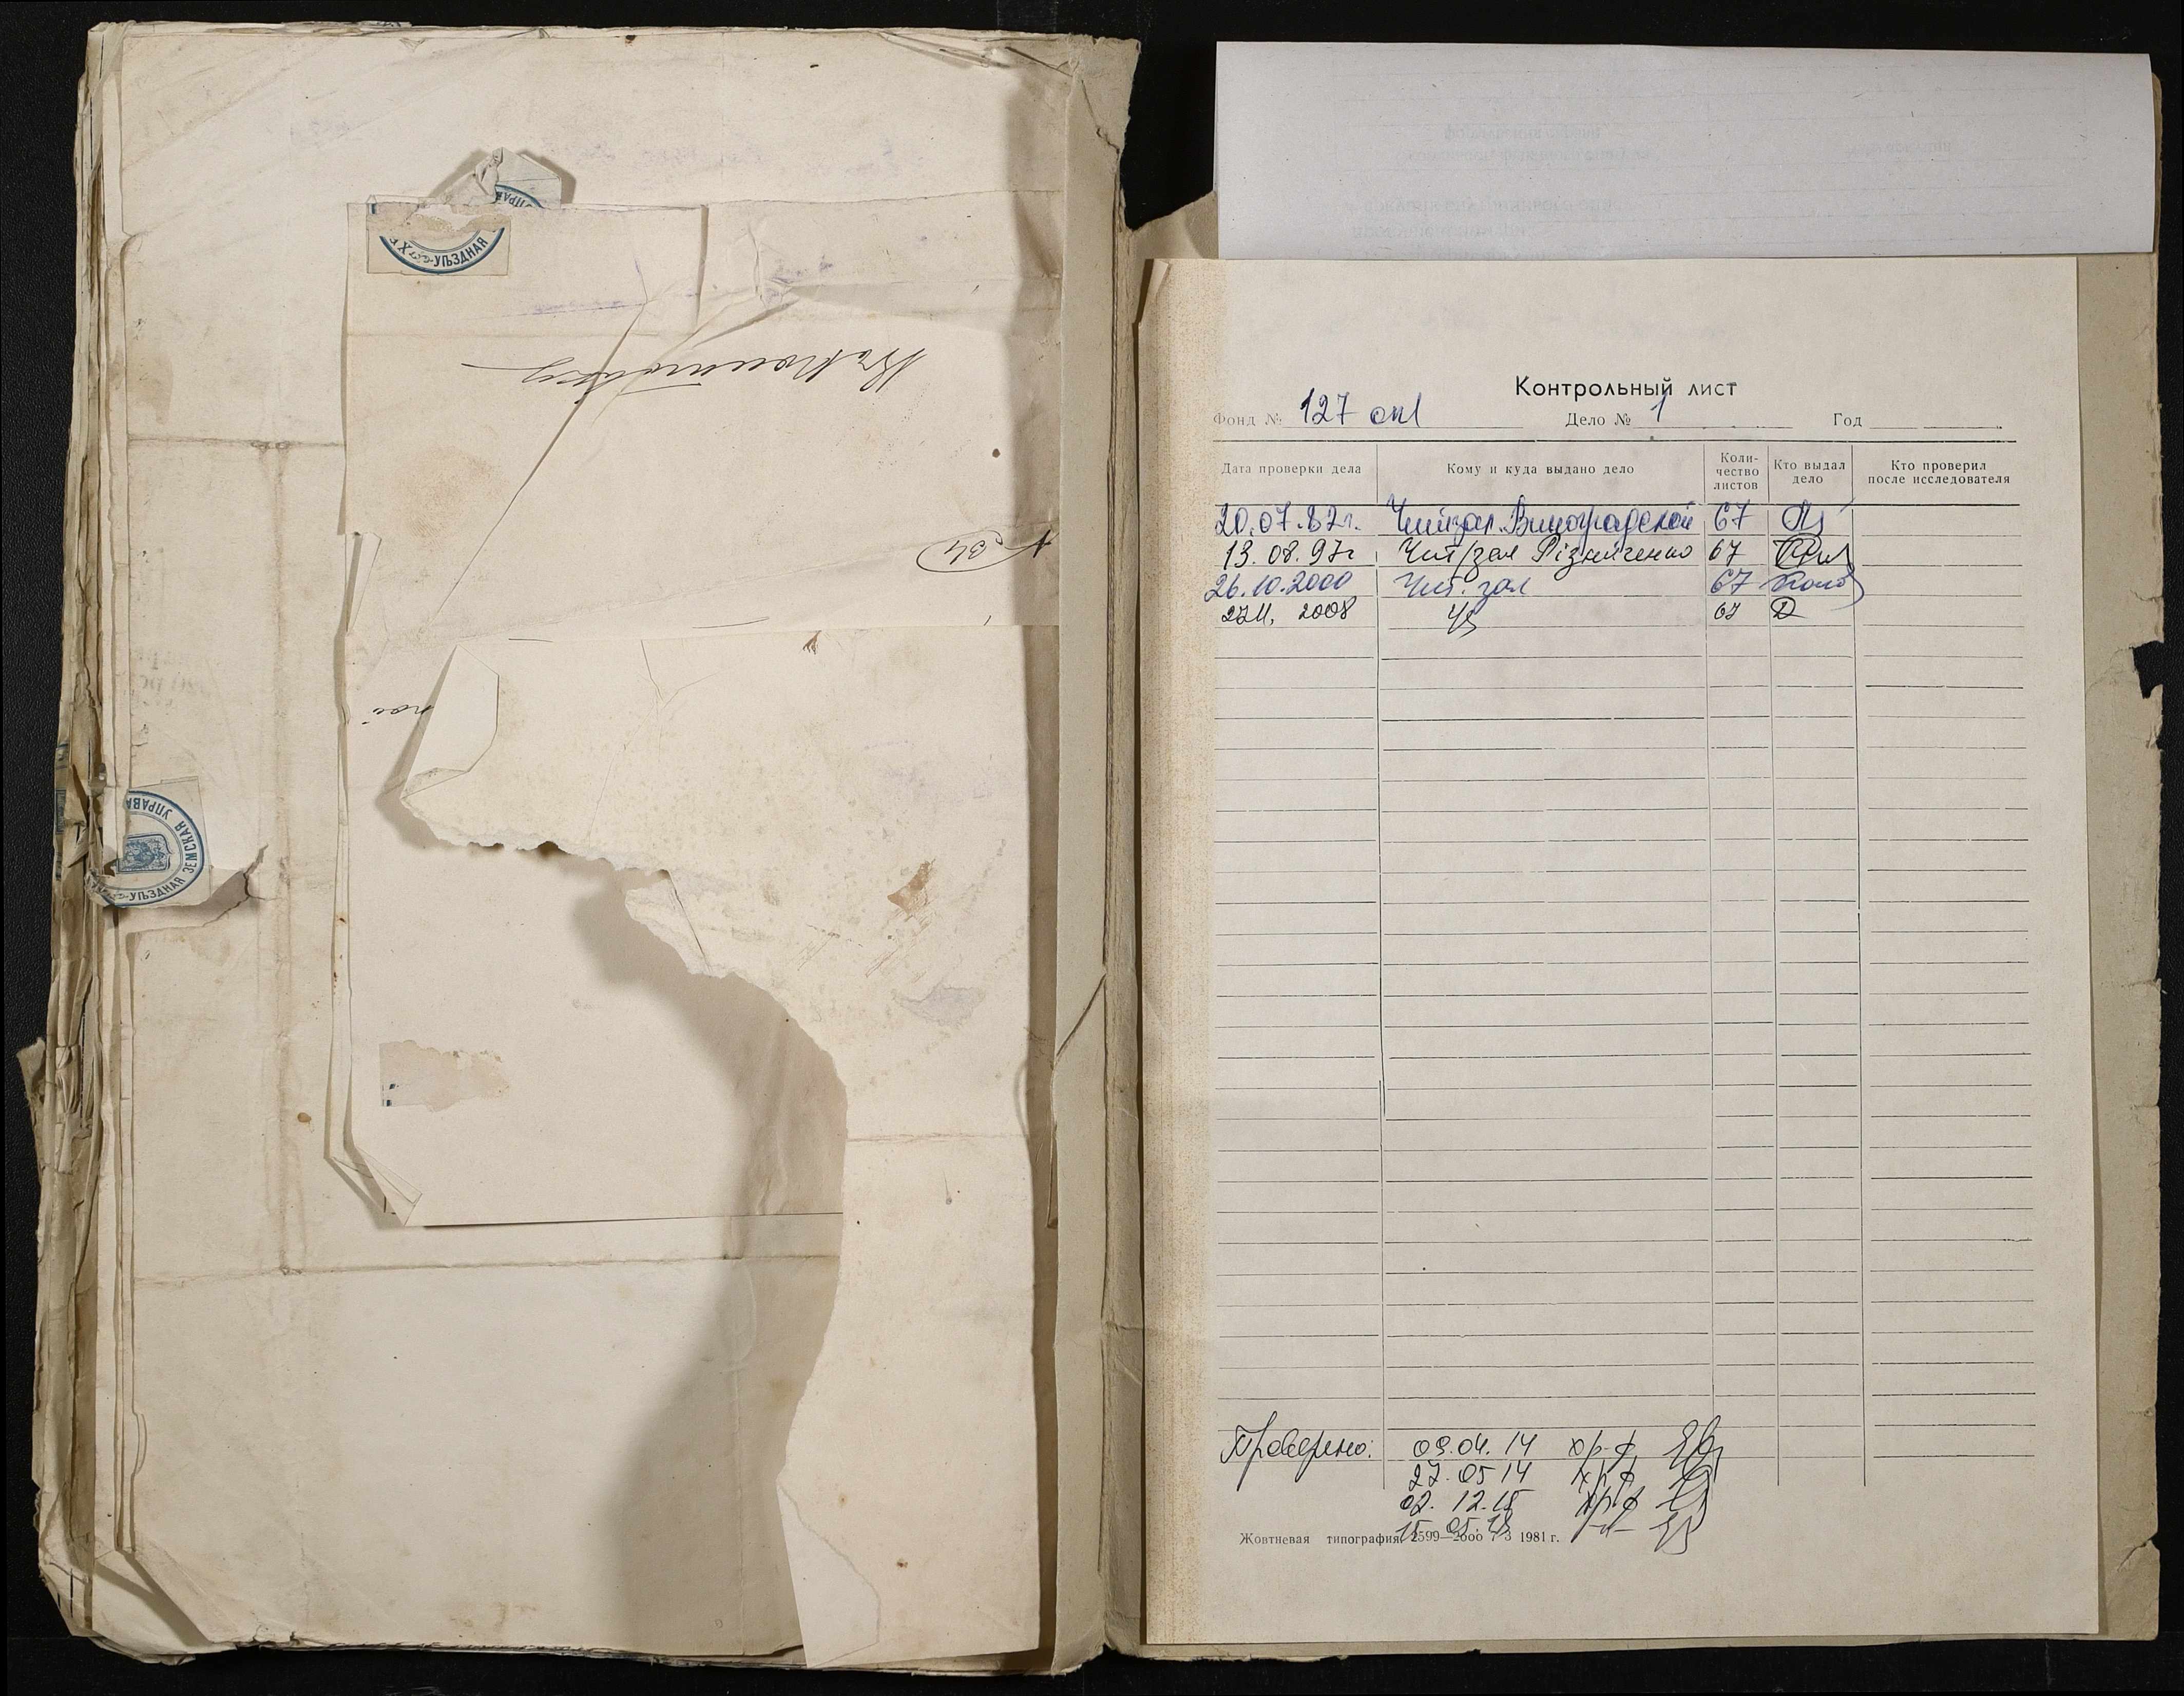 УПРА
УѢЗДНАЯ
№ 34
ной
УѢЗДНАЯ ЗЕМСКАЯ УПРАВА
Контрольный лист
Фонд № 127 оп1 Дело № 1 Год
Дата проверки дела
Кому и куда выдано дело
Коли-
чество
листов
Кто выдал
дело
Кто проверил
после исследователя
20.07.82г. Чит.зал. Виноградской 67
13.08.97г Чит/зал Різниченко 67
26.10.2000 Чит. зал 67
27.11. 2008 ЧЗ 67
Проверено: 09.04.14 хр-ф
27.05 14 хр-ф
02. 12.15 хр-ф
15.05.18 -//-
Жовтневая типография 2599—2000 7 3 1981 г.